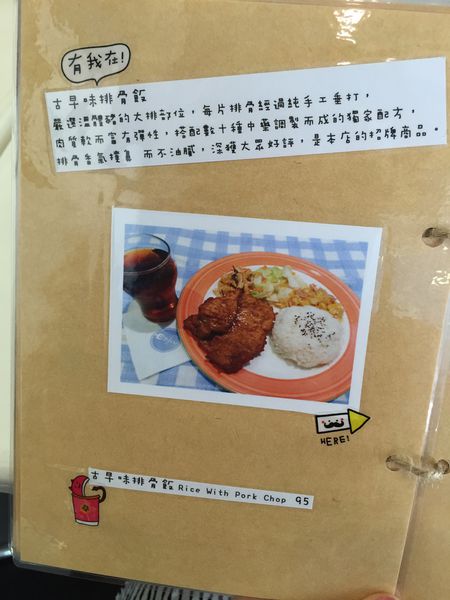 有我在!
古早味排骨飯
嚴選溫體豬的大排部位，每片排骨經過純手工垂打，
肉質軟而富有彈性，搭配數十種中藥調製而成的獨家配方，
排骨香氣撲鼻 而不油膩，深獲大眾好評，是本店的招牌商品。
HERE!
古早味排骨飯 Rice With Pork Chop 95